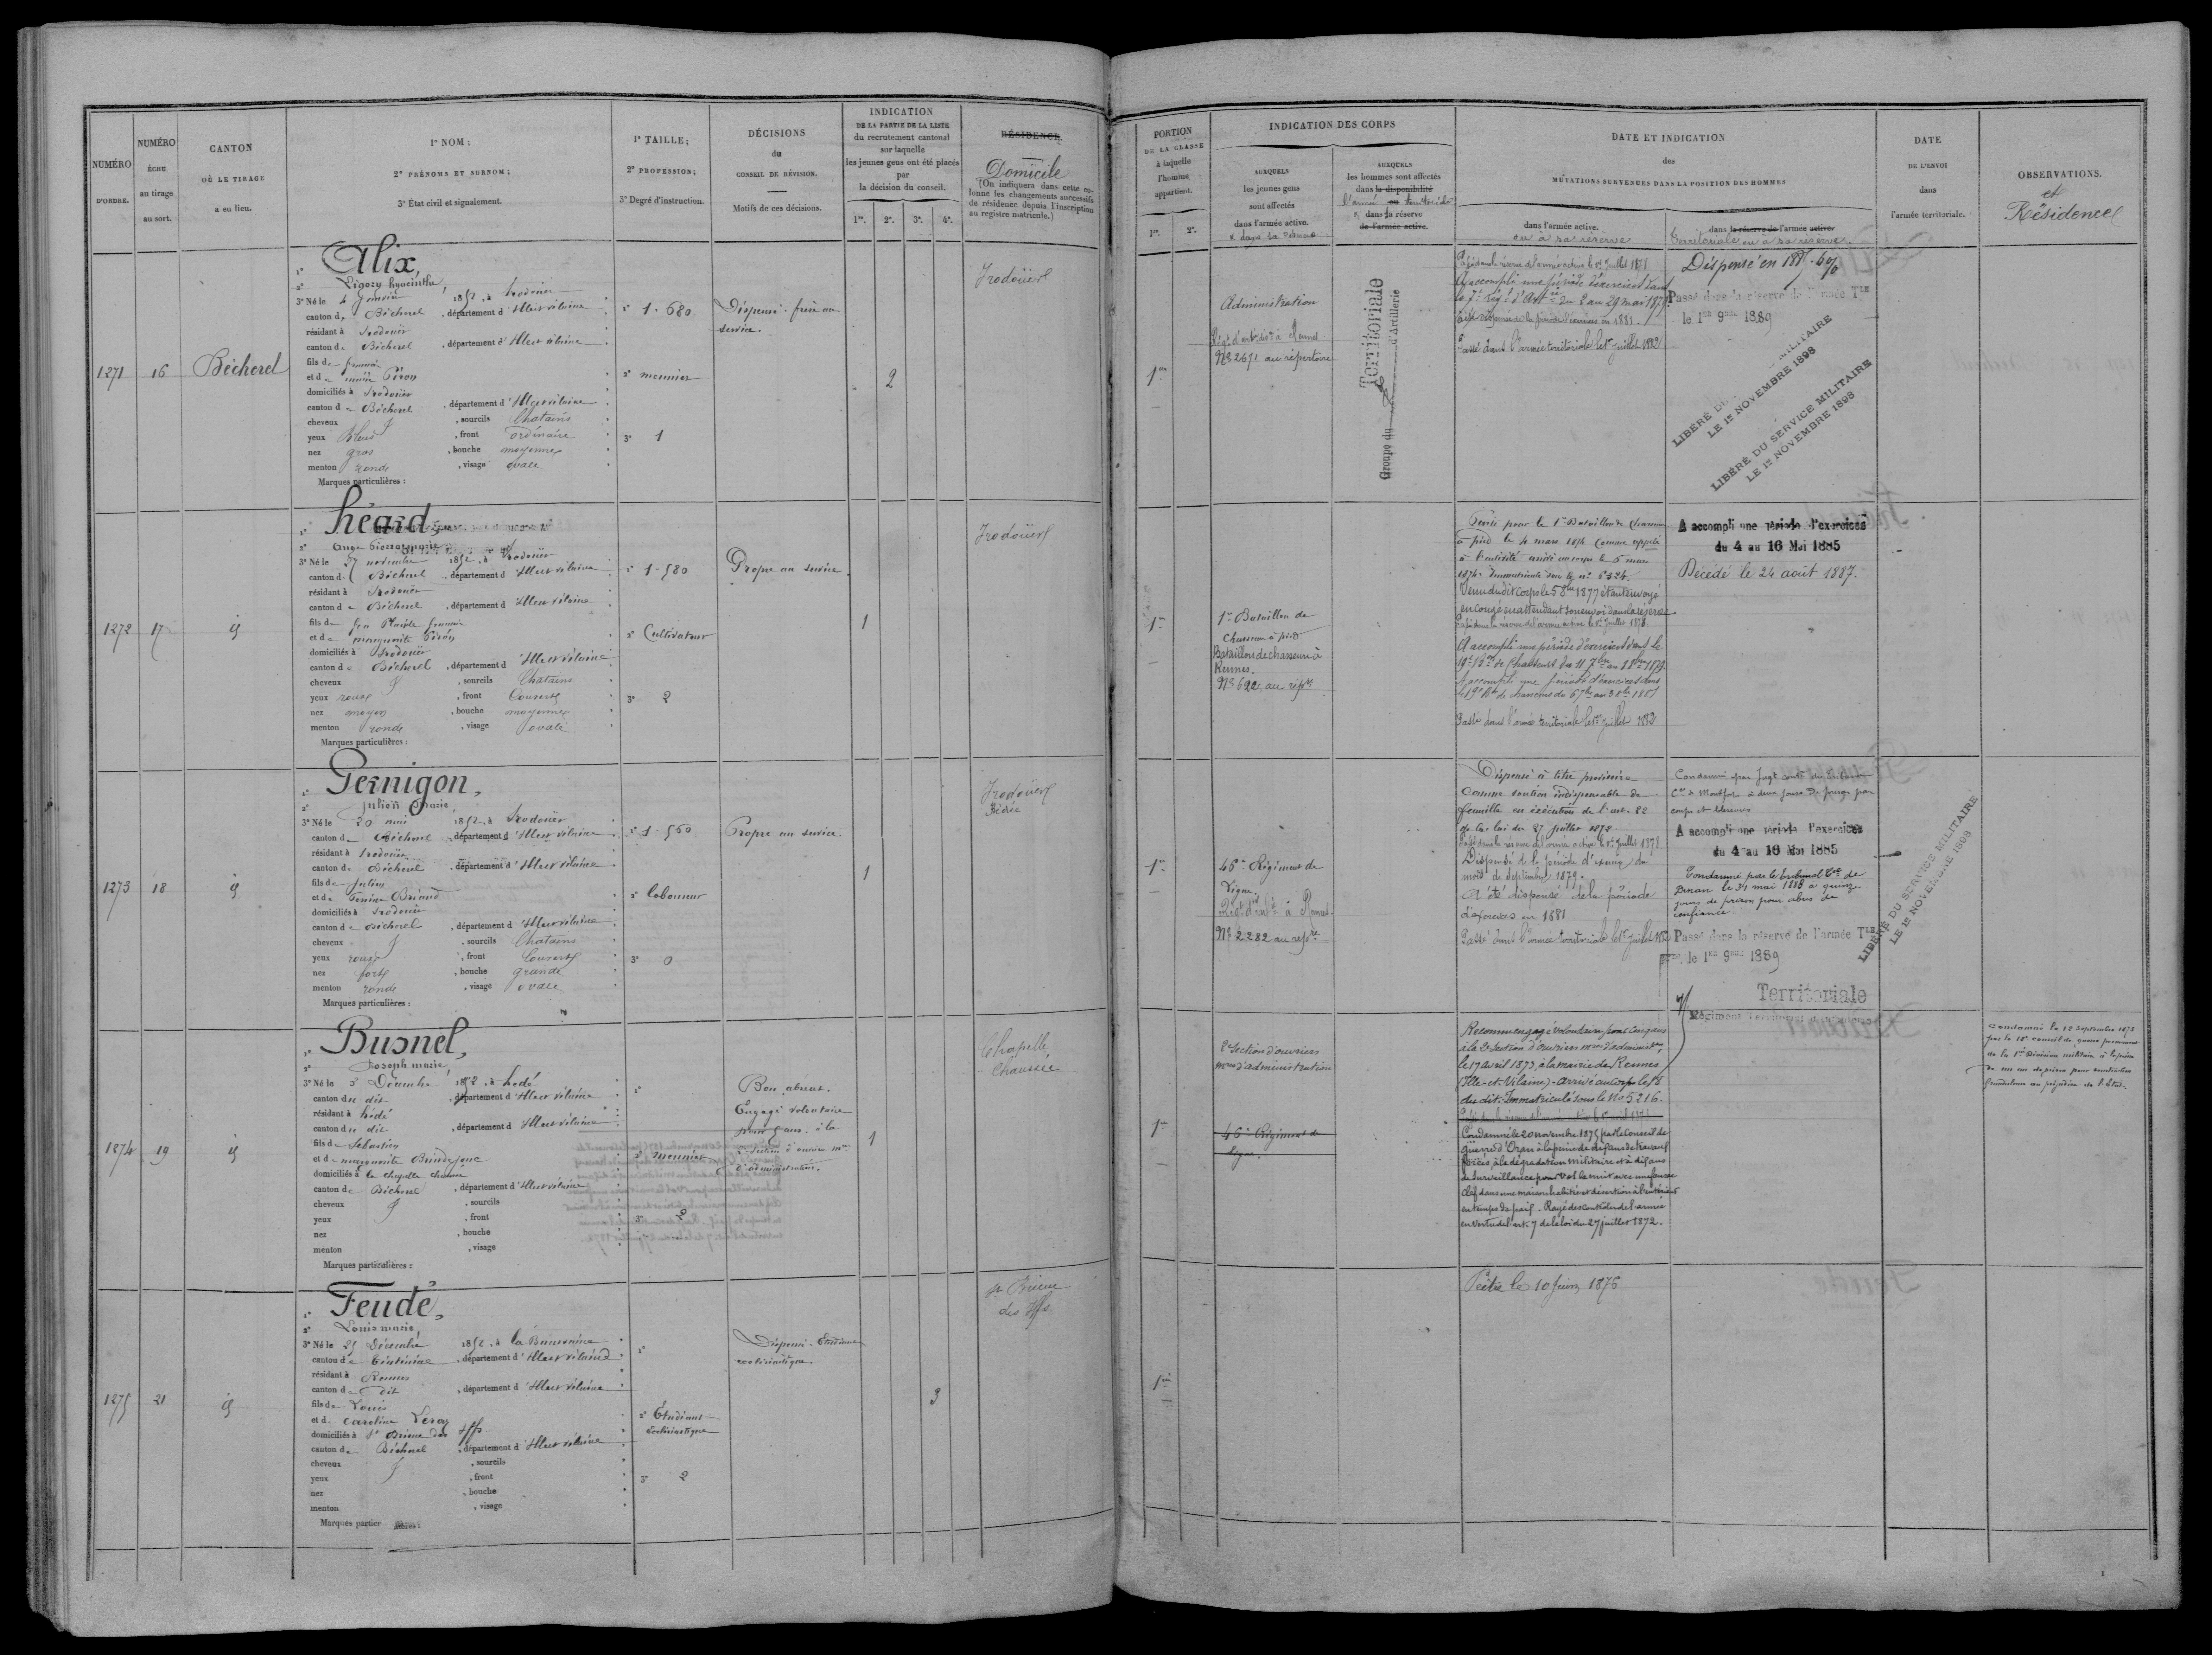 NUMÉRO
D'ORDRE.
NUMÉRO
ÉCHU
au tirage
au sort.
CANTON
OÙ LE TIRAGE
a eu lieu.
1º NOM ;
2º PRÉNOMS ET SURNOM ;
3º État civil et signalement.
1º TAILLE ;
2º PROFESSION ;
3º Degré d'instruction.
DÉCISIONS
du
CONSEIL DE RÉVISION.
Motifs de ces décisions.
INDICATION
DE LA PARTIE DE LA LISTE
du recrutement cantonal
sur laquelle
les jeunes gens ont été placés
par
la décision du conseil.
1re. 2e. 3e. 4e.
RÉSIDENCE
Domicile
(On indiquera dans cette co-
lonne les changements successifs
de résidence depuis l'inscription
au registre matricule.)
PORTION
DE LA CLASSE
à laquelle
l'homme
appartient.
1re. 2e.
INDICATION DES CORPS
AUXQUELS
les jeunes gens
sont affectés
dans l'armée active.
& dans sa réserve
AUXQUELS
les hommes sont affectés
dans la disponibilité
l'armée ou territoriale
& dans sa réserve
de l'armée active.
DATE ET INDICATION
des
MUTATIONS SURVENUES DANS LA POSITION DES HOMMES
dans l'armée active.
ou à sa réserve
dans la réserve de l'armée active.
Territoriale ou à sa réserve.
DATE
DE L'ENVOI
dans
l'armée territoriale.
OBSERVATIONS.
et
Résidence
1271
16
Bécherel
1º Alix,
2º Ligory hyacinthe,
3º Né le 4 Janvier 1852, à Irodouër
canton de Bécherel, département d'Ille et vilaine
résidant à Irodouër
canton de Bécherel, département d'Ille et vilaine
fils de
et de marie Piron
domiciliés à Irodouër
canton de Bécherel, département d'Ille et vilaine
cheveux, sourcils Chatains
yeux Bleus, front ordinaire
nez gros, bouche moyenne
menton rond, visage ovale
Marques particulières :
1º 1.680
2º meunier
3º 1
Dispensé. frère au
service.
2
Irodouër
1re
Administration
Régt d'artrie à Rennes
Nº 2671 au répertoire
Territoriale
Groupe du d'Artillerie
Passé dans la réserve de l'armée active le 1er Juillet 1878
A accompli une période d'exercices dans
le 7e régt d'Artie du 2 au 29 mai 1879
Passé dans l'armée territoriale le 1er juillet 1882
Dispensé en 1885. 6%
Passé dans la réserve de l'armée Tle
le 1er 9bre 1889
LIBÉRÉ DU MILITAIRE
LE 1er NOVEMBRE 1898
LIBÉRÉ DU SERVICE MILITAIRE
LE 1er NOVEMBRE 1898
1272
17
id
1º héard,
2º Ange Pierre marie
3º Né le 27 novembre 1852, à Irodouër
canton de Bécherel, département d'Ille et vilaine
résidant à Irodouër
canton de Bécherel, département d'Ille et vilaine
fils de feu Placide
et de marguerite Piron
domiciliés à Irodouër
canton de Bécherel, département d'Ille et vilaine
cheveux, sourcils Chatains
yeux roux, front Couvert
nez moyen, bouche moyenne
menton rond, visage ovale
Marques particulières :
1º 1.580
2º Cultivateur
3º 2
Propre au service
1
Irodouër
1re
1er Bataillon de
Chasseurs à pied
Bataillon de chasseurs à
Rennes.
Nº 622 au répre
Parti pour le 1er Bataillon de Chasseurs
à pied le 4 mars 1874 Comme appelé
à l'activité arrivé au corps le 5 mars
1874. Immatriculé sous le nº 6324.
Venu dudit corps le 5 8bre 1877 étant envoyé
en congé en attendant son envoi dans la réserve
Passé dans la réserve de l'armée active le 1er Juillet 1878.
A accompli une période d'exercices dans le
19e Bon de Chasseurs du 11 7bre au 8 8bre 1879
A accompli une période d'exercices dans
le 19e Bon de chasseurs du 6 7bre au 3 8bre 1881
Passé dans l'armée territoriale le 1er juillet 1882
A accompli une période d'exercices
du 4 au 16 Mai 1885
Décédé le 24 août 1887.
1273
18
id
1º Pernigon,
2º Julien marie,
3º Né le 20 mai 1852, à Irodouër
canton de Bécherel, département d'Ille et vilaine
résidant à Irodouër
canton de Bécherel, département d'Ille et vilaine
fils de Julien
et de Briand
domiciliés à Irodouër
canton de Bécherel, département d'Ille et vilaine
cheveux, sourcils Chatains
yeux roux, front Couvert
nez fort, bouche grande
menton rond, visage ovale
Marques particulières :
1º 1.560
2º laboureur
3º 0
Propre au service
1
Irodouër
Bédée
1re
46e Régiment de
Ligne.
Régt d'infie à Rennes
Nº 2282 au répre
Dispensé à titre provisoire
Comme soutien indispensable de
famille en exécution de l'art. 22
de la loi du 27 juillet 1872.
Passé dans la réserve de l'armée active le 1er Juillet 1878
Dispensé de la période d'exercices du
mois de septembre 1879.
A été dispensé de la période
d'exercices en 1881
Passé dans l'armée territoriale le 1er juillet 1882
Condamné par Jugt contre du tribunal
Cel de Montfort à deux jours de prison pour
coups et blessures
A accompli une période d'exercices
du 4 au 16 Mai 1885
Condamné par le tribunal Cel de
Dinan le 31 mai 1888 à quinze
jours de prison pour abus de
confiance.
Passé dans la réserve de l'armée Tle
le 1er 9bre 1889
Territoriale
LIBÉRÉ DU SERVICE MILITAIRE
LE 1er NOVEMBRE 1898
1274
19
id
1º Busnel,
2º Joseph marie,
3º Né le 5 Décembre 1852, à hédé
canton du dit, département d'Ille et vilaine
résidant à hédé
canton du dit, département d'Ille et vilaine
fils de Sébastien
et de marguerite Brindejonc
domiciliés à la chapelle chaussée
canton de Bécherel, département d'Ille et vilaine
cheveux, sourcils
yeux, front
nez, bouche
menton, visage
Marques particulières :
1º
2º meunier
3º 2
Bon absent.
Engagé volontaire
pour 5 ans à la
2e Section d'ouvriers mres
d'administration.
1
Chapelle
Chaussée
1re
2e Section d'ouvriers
mres d'administration
46e Régiment de
ligne.
engagé volontaire pour cinq ans
à la 2e Section d'ouvriers mres d'administration
le 17 avril 1873, à la mairie de Rennes
(Ille-et-Vilaine). Arrivé au Corps le 18
du dit. Immatriculé sous le Nº 5216.
Condamné le 20 novembre 1875 par le Conseil de
guerre d'Oran à la peine de dix ans de travaux
forcés, à la dégradation militaire et à dix ans
de surveillance pour Vol la nuit avec une fausse
clef dans une maison habitée et désertion à l'intérieur
en temps de paix. Rayé des contrôles de l'armée
en vertu de l'art. 7 de la loi du 27 juillet 1872.
Condamné le 12 Septembre 1873
par le conseil de guerre permanent
de la 1re Division militaire à la peine
de un an de prison pour
frauduleux au préjudice de l'Etat.
1275
21
id
1º Feudé,
2º Louis marie
3º Né le 25 Décembre 1852, à la Baussaine
canton de Tinténiac, département d'Ille et vilaine
résidant à Rennes
canton du dit, département d'Ille et vilaine
fils de Louis
et de Caroline Leray
domiciliés à St Brieuc des Iffs
canton de Bécherel, département d'Ille et vilaine
cheveux, sourcils
yeux, front
nez, bouche
menton, visage
Marques particulières :
1º
2º Étudiant
Ecclésiastique
3º 2
Dispensé. Etudiant
ecclésiastique.
3
St Brieuc
des Iffs
1re
Prêtre le 10 Juin 1876